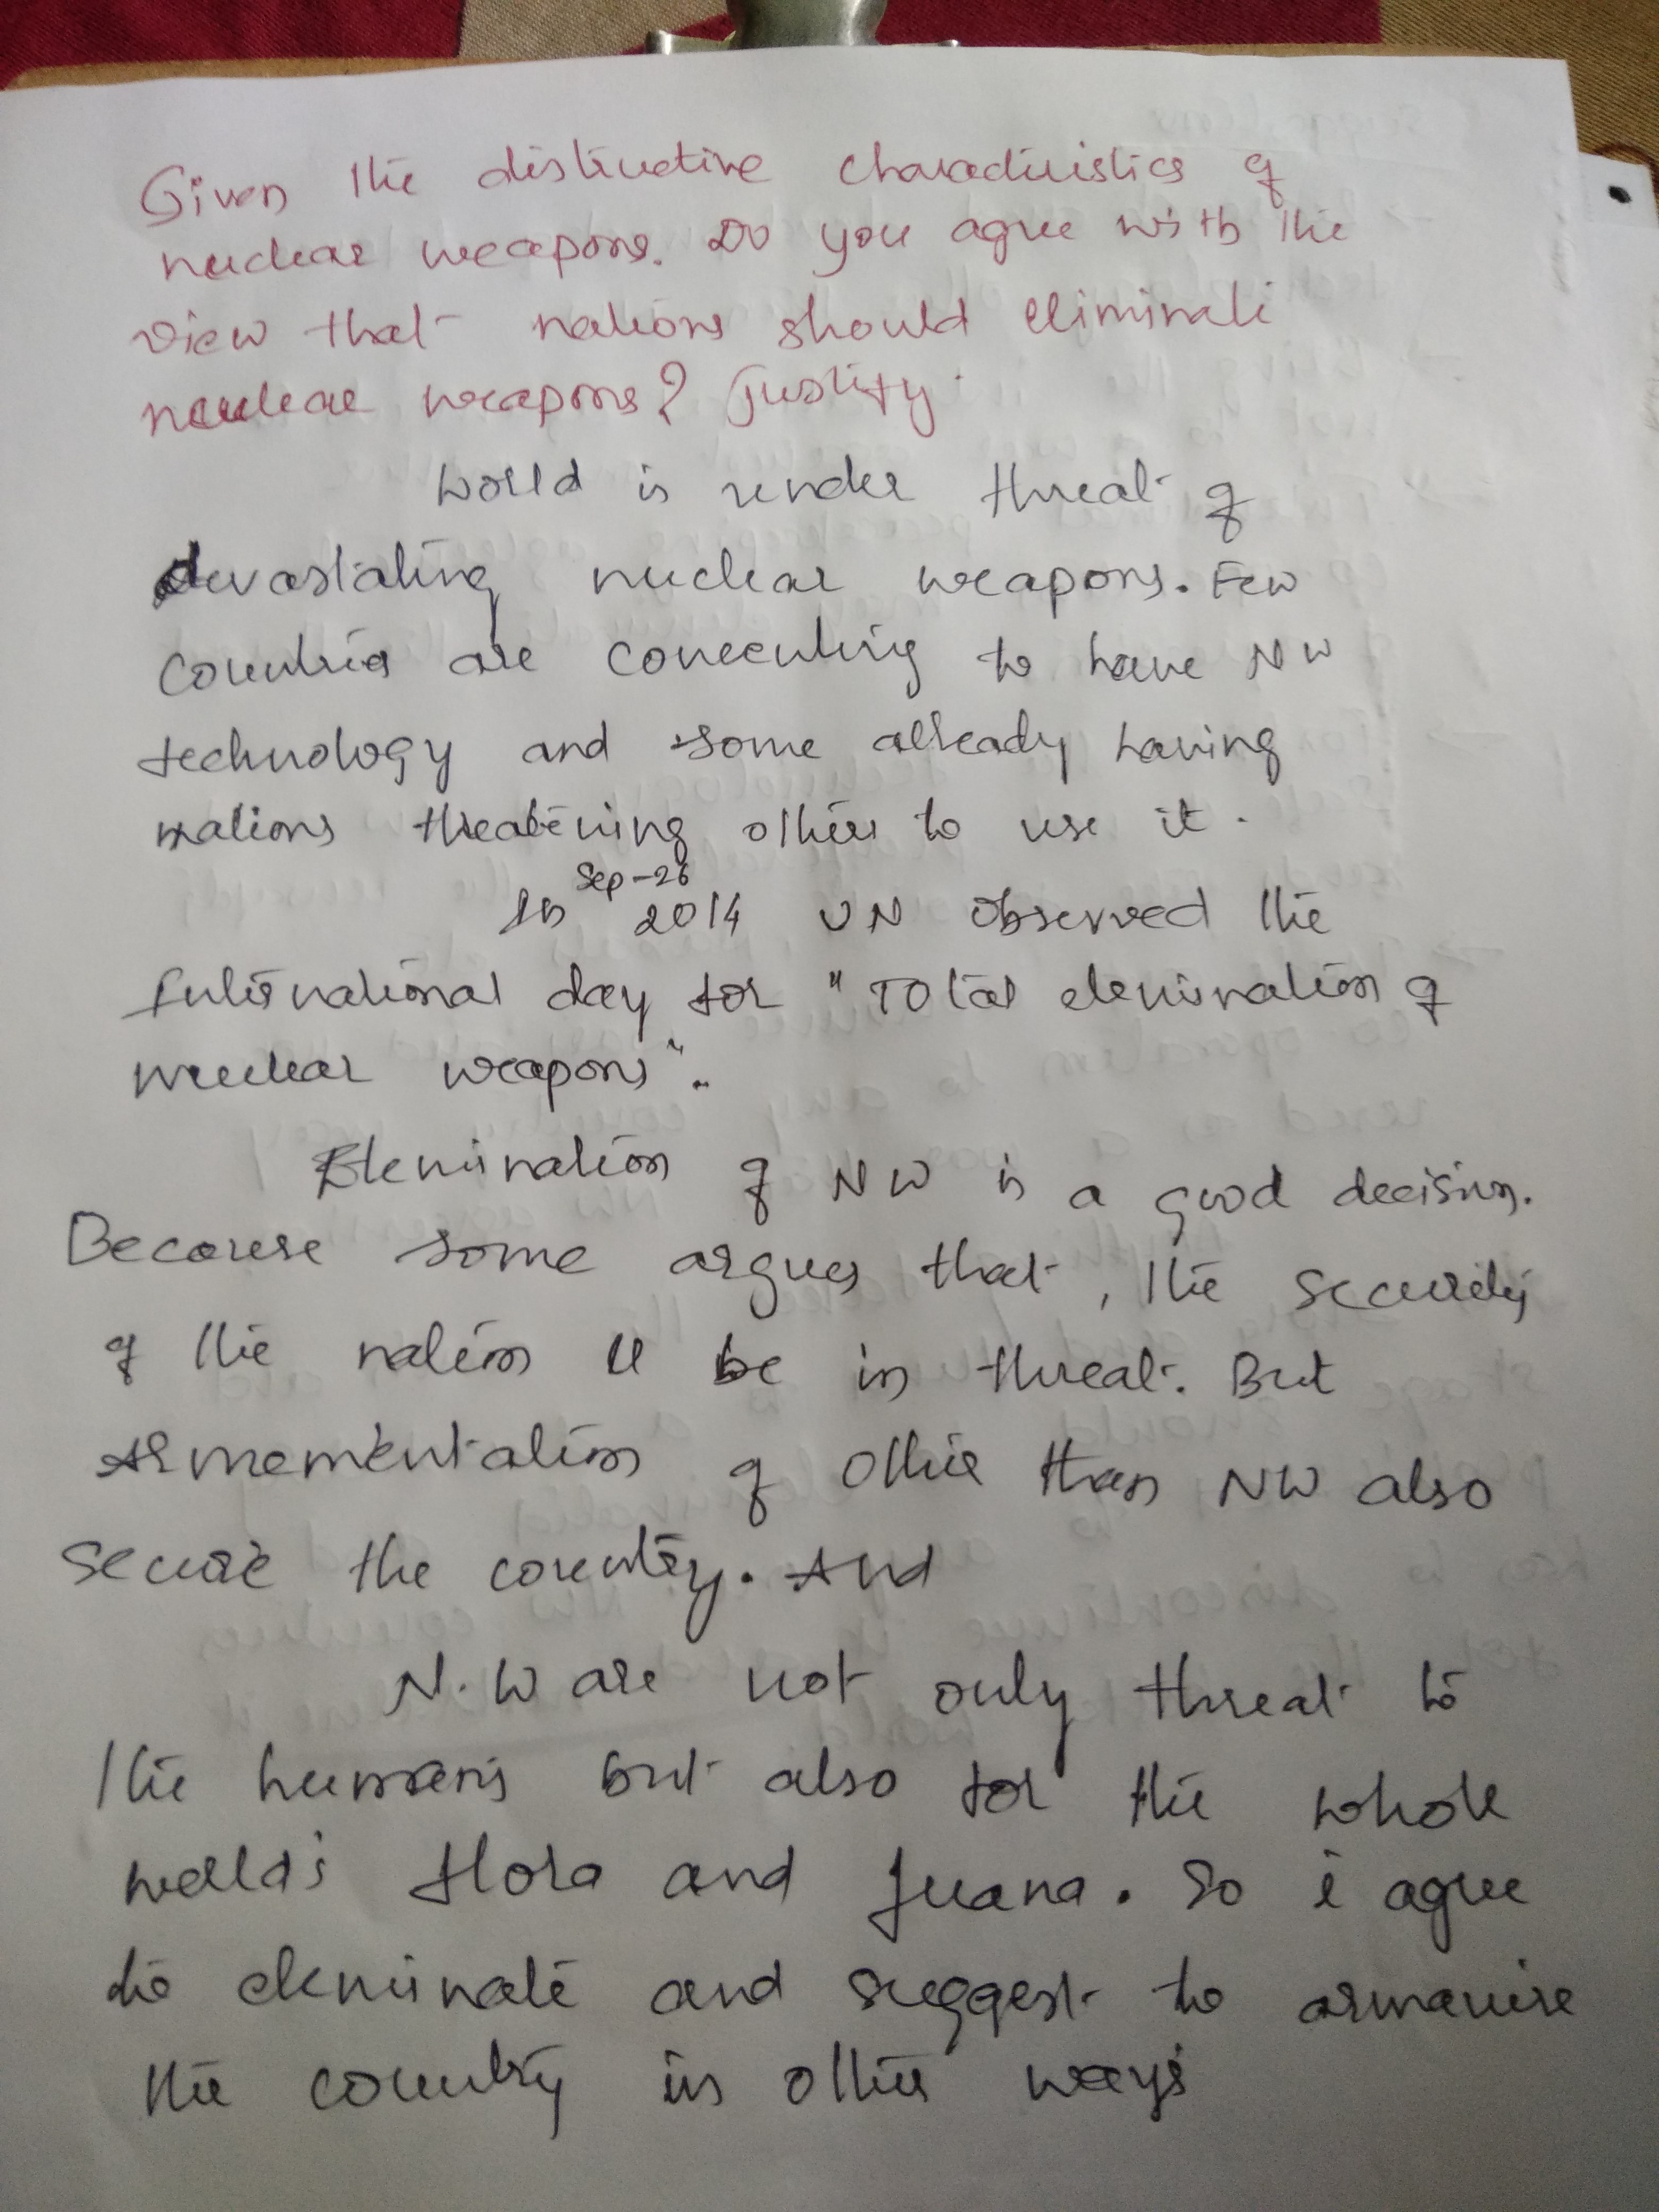 Given the distinctive characteristics of
nuclear weapons. Do you agree with the
view that nations should eliminate
nuclear weapons? Justify.
World is under threat of
devastating nuclear weapons. Few
countries are to have NW
technology and some already having
nations threatening others to use it.
Sep-26
In 2014 UN observed the
International day for "Total elemination of
nuclear weapons".
Elemination of NW is a good decision.
Because some argues that, the security
of the nation ll be in threat. But
armementation of other than NW also
secure the country. And
N.W are not only threat to
the humans but also for the whole
world's flora and fuana. So i agree
to eleminate and suggest to
the country in other ways